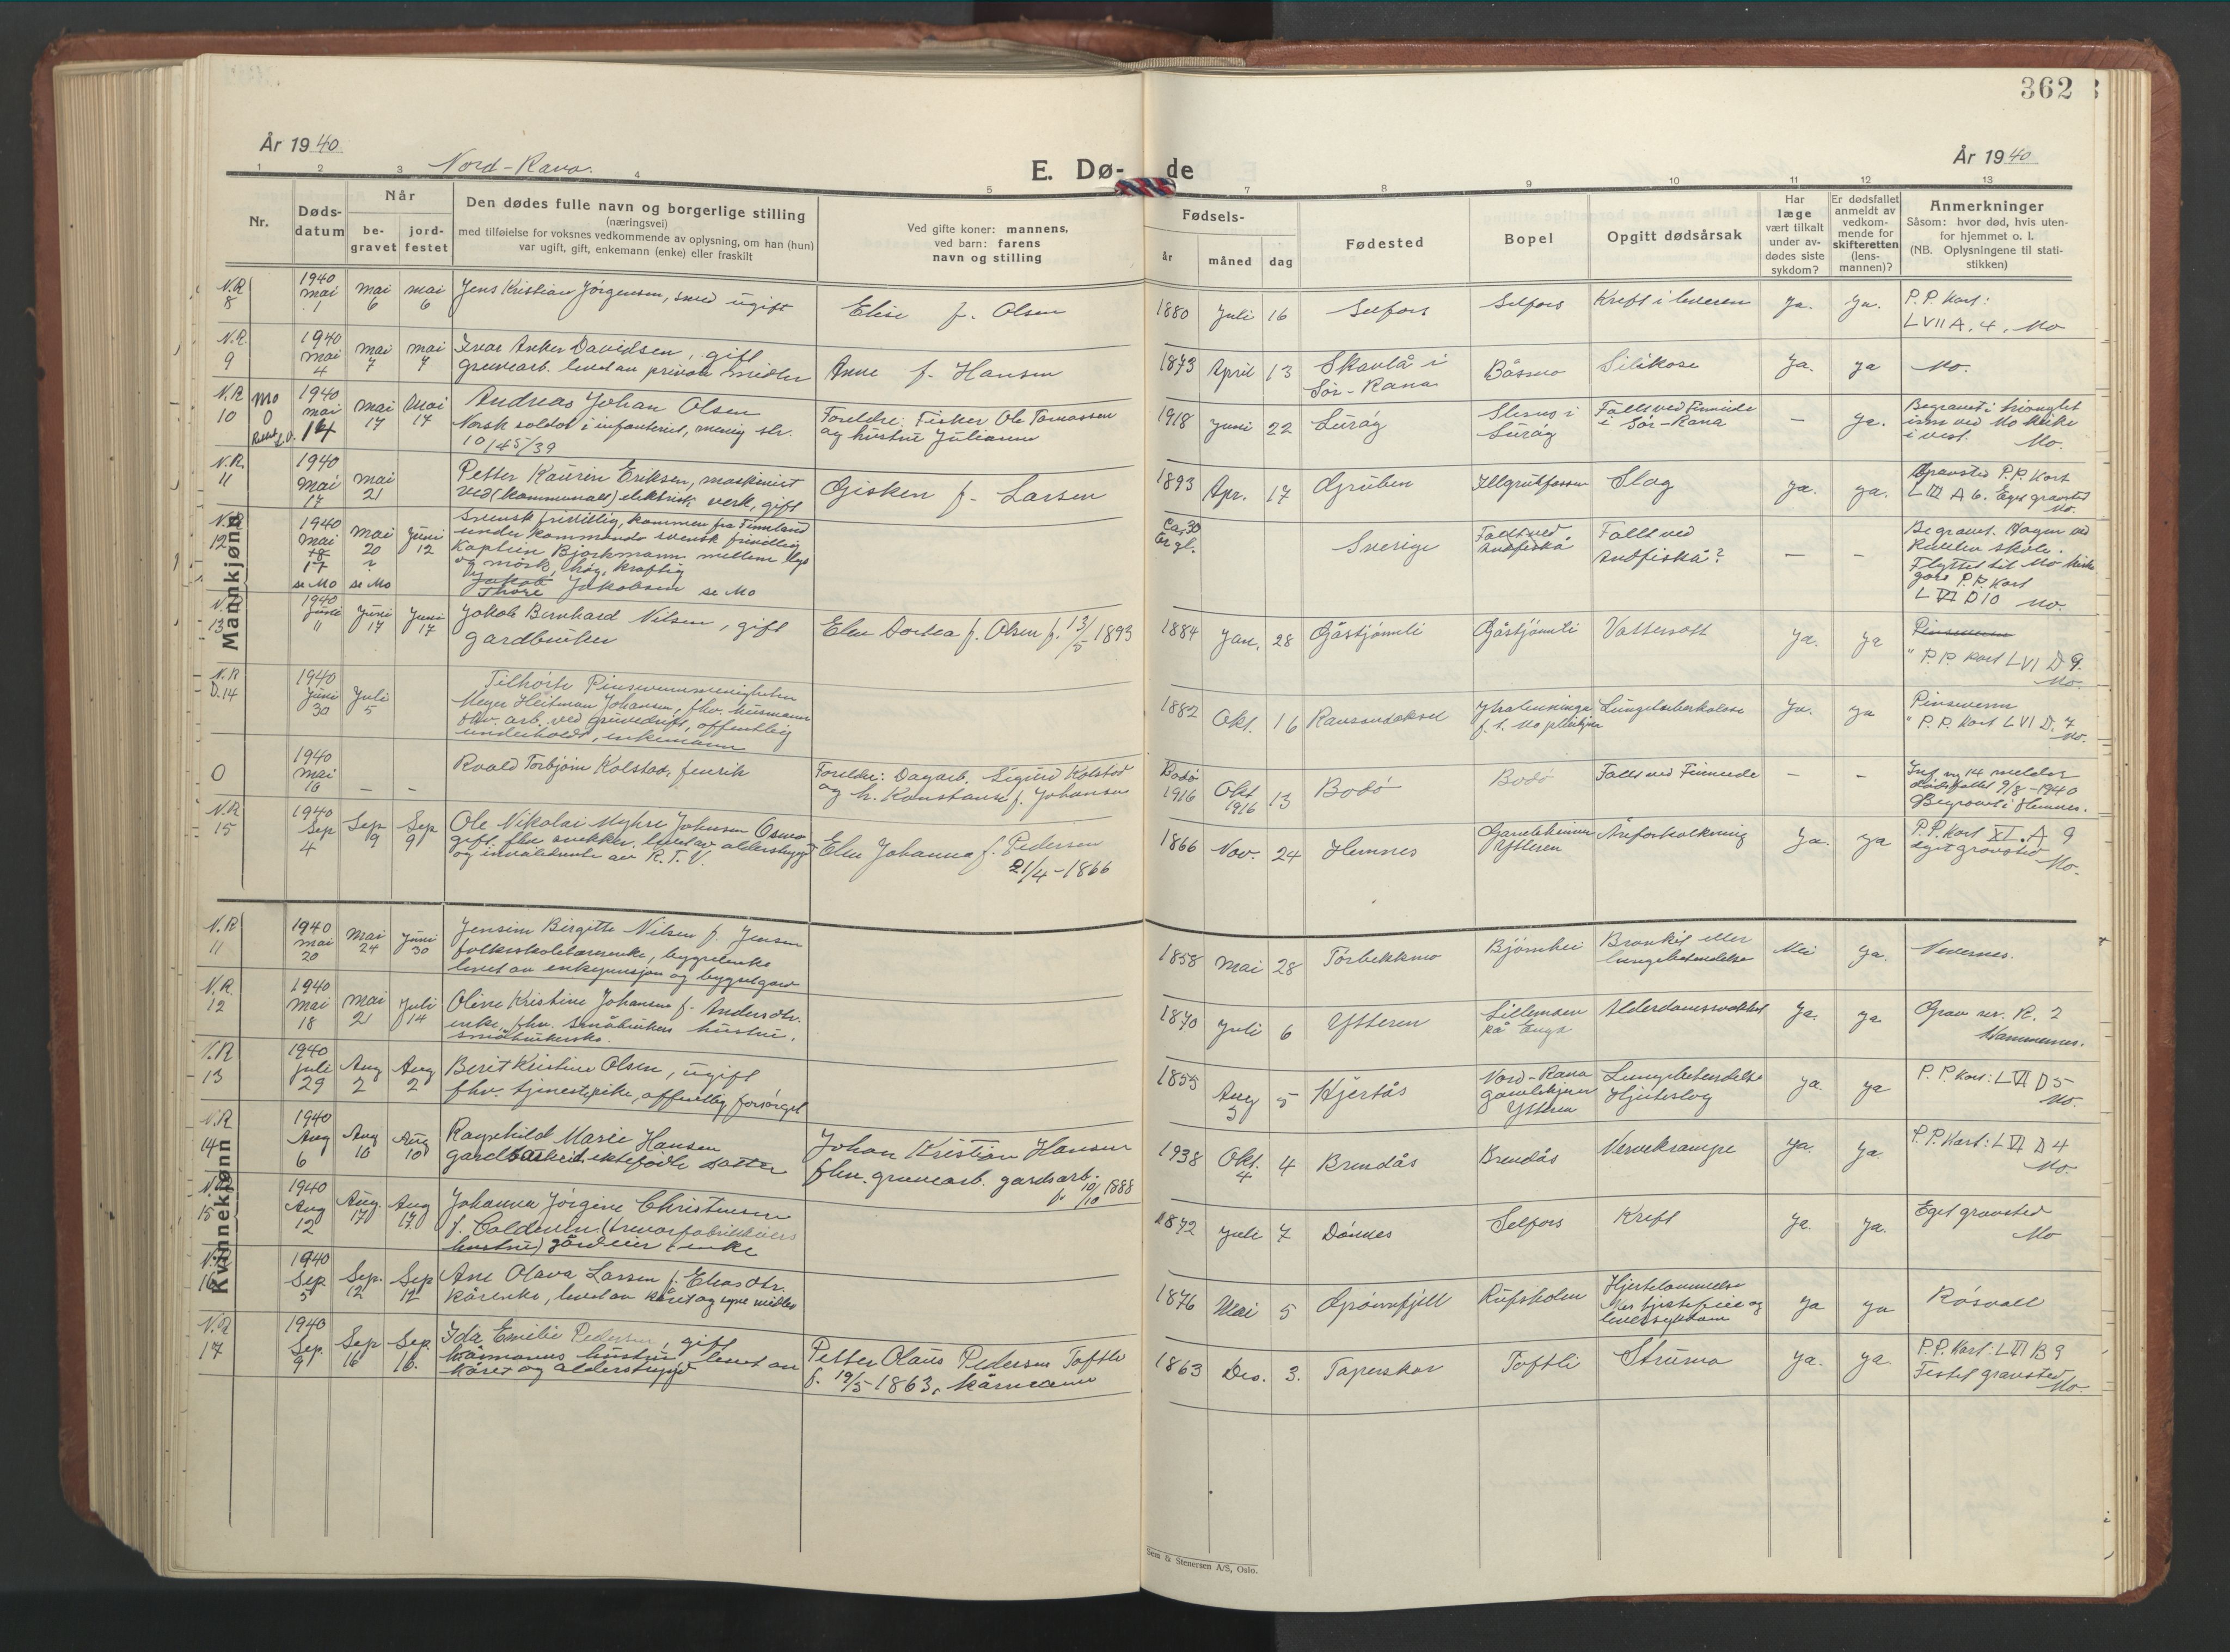 362
År 1940
Nord-Rana.
E. Dø- de
År 1940
1 2 3 4 5 7 8 9 10 11 12 13
Nr.
Døds-
datum
Når
be-
gravet
jord-
festet
Den dødes fulle navn og borgerlige stilling
(næringsvei)
med tilføielse for voksnes vedkommende av oplysning, om han (hun)
var ugift, gift, enkemann (enke) eller fraskilt
Ved gifte koner: mannens,
ved barn: farens
navn og stilling
Fødsels-
år måned dag
Fødested
Bopel
Opgitt dødsårsak
Har
læge
vært tilkalt
under av-
dødes siste
sykdom?
Er dødsfallet
anmeldt av
vedkom-
mende for
skifteretten
(lens-
mannen)?
Anmerkninger
Såsom: hvor død, hvis uten-
for hjemmet o. l.
(NB. Oplysningene til stati-
stikken)
Mannkjønn
N.R. 8 1940 mai 1 mai 6 mai 6 Jens Kristian Jörgensen, smed ugift Elise f. Olsen 1880 Juli 16 Selfors Selfors Kreft i leveren Ja. Ja. P.P. Kart:
LVII A. 4. Mo
N.R. 9 1940 mai 4 mai 7 mai 7 Ivar Anker Davidsen, gift
gruvearb. levet av private midler Anne f. Hansen 1873 April 13 Skavlå i
Sör-Rana Båsmo Silikose Ja. ja Mo.
N.R. 10 Mo 0 1940 mai 14 mai 17 Mai 17 Andreas Johan Olsen
Norsk soldat i infanteriet, menig
10145/39 Foreldre: Fisker Ole Tomassen
og hustru Julianne 1918 Juni 22 Luröy
Luröy Falt ved Finneide
i Sör-Rana — ja. Begravet i trianglet
inn ved Mo kirke
i vest. Mo.
N.R. 11 1940 Mai 17 mai 21 Petter Kaurin Eriksen, maskinist
ved (kommunalt) elektrisk verk, gift Gisken f. Larsen 1893 Apr. 17 Gruben Illgrutfossen Slag ja. ja. Gravsted P.P. Kart
L III A 6. Eget gravsted
Mo.
N.R. 12 1940 Mai 18 17 se Mo mai 20 se Mo Juni 12 Svensk frivillig, kommen fra Finnland
under kommando svensk frivillig
Kaptein Björkmann mellem lys
og mörk, höy, kraftig
Thore Jakobsen se Mo Ca. 30
år gl. Sverige Falt ved
Andfiskå Falt ved
Andfiskå? — — Begravet. Hagen ved
skole.
Flyttet til Mo kirke
gård P.P. Kart
L VI D 10 Mo.
N.R. 13 1940 Juni 11 Juni 17 Juni 17 Jakob Bernhard Nilsen, gift
gardbruker Elen Dortea f. Olsen f. 13/5 1893 1884 Jan. 28 Gåstjönnli Gåstjönnli Vattersott Ja. ja Pinsevenn
" P.P. Kart L VI D 9.
Mo.
N.R. D.14 1940 Juni 30 Juli 5 Tilhörte Pinsevennmenigheten
Meyer Heitman Johansen, fhv. husmann
fhv. arb. ved gruvedrift, offentlig
underholdt, enkemann 1882 Okt. 16 Ranaundakset Lungetuberkulose Ja. ja Pinsevenn
" P.P. Kart L VI D. 7
Mo.
0 1940 mai 16 — — Roald Torbjörn Kolstad, fenrik Foreldre: Dagarb. Sigurd Kolstad
og h. Konstanse f. Johansen Bodö
1916 Okt 1916 13 Bodö Bodö Falt ved Finneide — — Inf. reg 14 melder
dödsfallet 9/8-1940
Begravet i Hemnes.
N.R. 15 1940 Sep 4 Sep 19 Sep 9 Ole Nikolai Myhre Johnsen Osmo
gift, fhv snekker, levet av alderstrygd
og invaliderente av R.T.V. Elen Johanna f. Pedersen
21/4-1866 1866 Nov. 24 Hemnes Gamlehjemmet
Ytteren Åreforkalkning Ja. ja P.P. Kart XL. A 9
eget gravsted
Mo.
Kvinnekjønn
N.R 11 1940 mai 20 Mai 24 Juni 30 Jensine Birgitte Nilsen f. Jensen
folkeskolelærerenke, bygselenke
levet av enkepensjon og bygselgard 1858 Mai 28 Torbekkmo Björnhei Bronkit eller
lungebetendelse Nei ja. Nevernes.
N.R. 12 1940 Mai 18 mai 21 Juli 14 Oline Kristine Johansen f. Andersdtr.
enke, fhv. småbrukers hustru,
1870 Juli 6 Ytteren Lillemoen
på Enga Alderdomssvakhet Ja. ja Grav nr. R. 2
N.R 13 1940 Juli 29 Aug 2 Aug 2 Berit Kristine Olsen, ugift
fhv. tjenestepike, offentlig forsörget 1855 Aug 5 Hjertås Nord-Rana
gamlehjem
Ytteren Lungebetendelse
Hjerteslag ja. ja P.P. Kart: L VI D 5
Mo.
N.R. 14 1940 Aug 6 Aug 10 Aug 10 Ragnhild Marie Hansen
gardbarbeid. ektefödte datter Johan Kristian Hansen
fhv. gruvearb. gardsarb.
f. 19/10 1888 1938 Okt. 4 Brendås Brendås Nervekrampe ja. ja. P.P. Kart: L VI D 4
Mo.
N.R. 15 1940 Aug 12 Aug. 17 Aug 17. Johanna Jörgine Christensen
f. (trevarefabrikkeiers
hustru) gårdeier enke 1872 Juli 7 Dönnes Selfors Kreft Ja. ja. Eget gravsted
Mo
N.R. 16 1940 Sep 5 Sep. 12 Sep 12 Ane Olava Larsen f. Eliasdtr.
kårenke, levet av kåret og egne midler 1876 Mai 5 Grönnfjell Rufsholm Hjertelammelse
leversykdom ja ja Rösvoll
N.R 17 1940 Sep. 9 Sep 16 Sep. 16. Ida Emilie Pedersen, gift
kårmanns hustru levet av
kåret og alderstrygd Petter Olaus Pedersen Toftli
f. 19/5-1863, kårmann 1863 Des. 3. Taperskar Toftli Struma ja. ja. P.P. Kart: L VI B 9
Festet gravsted
Mo.
Sem & Stenersen A/S, Oslo.